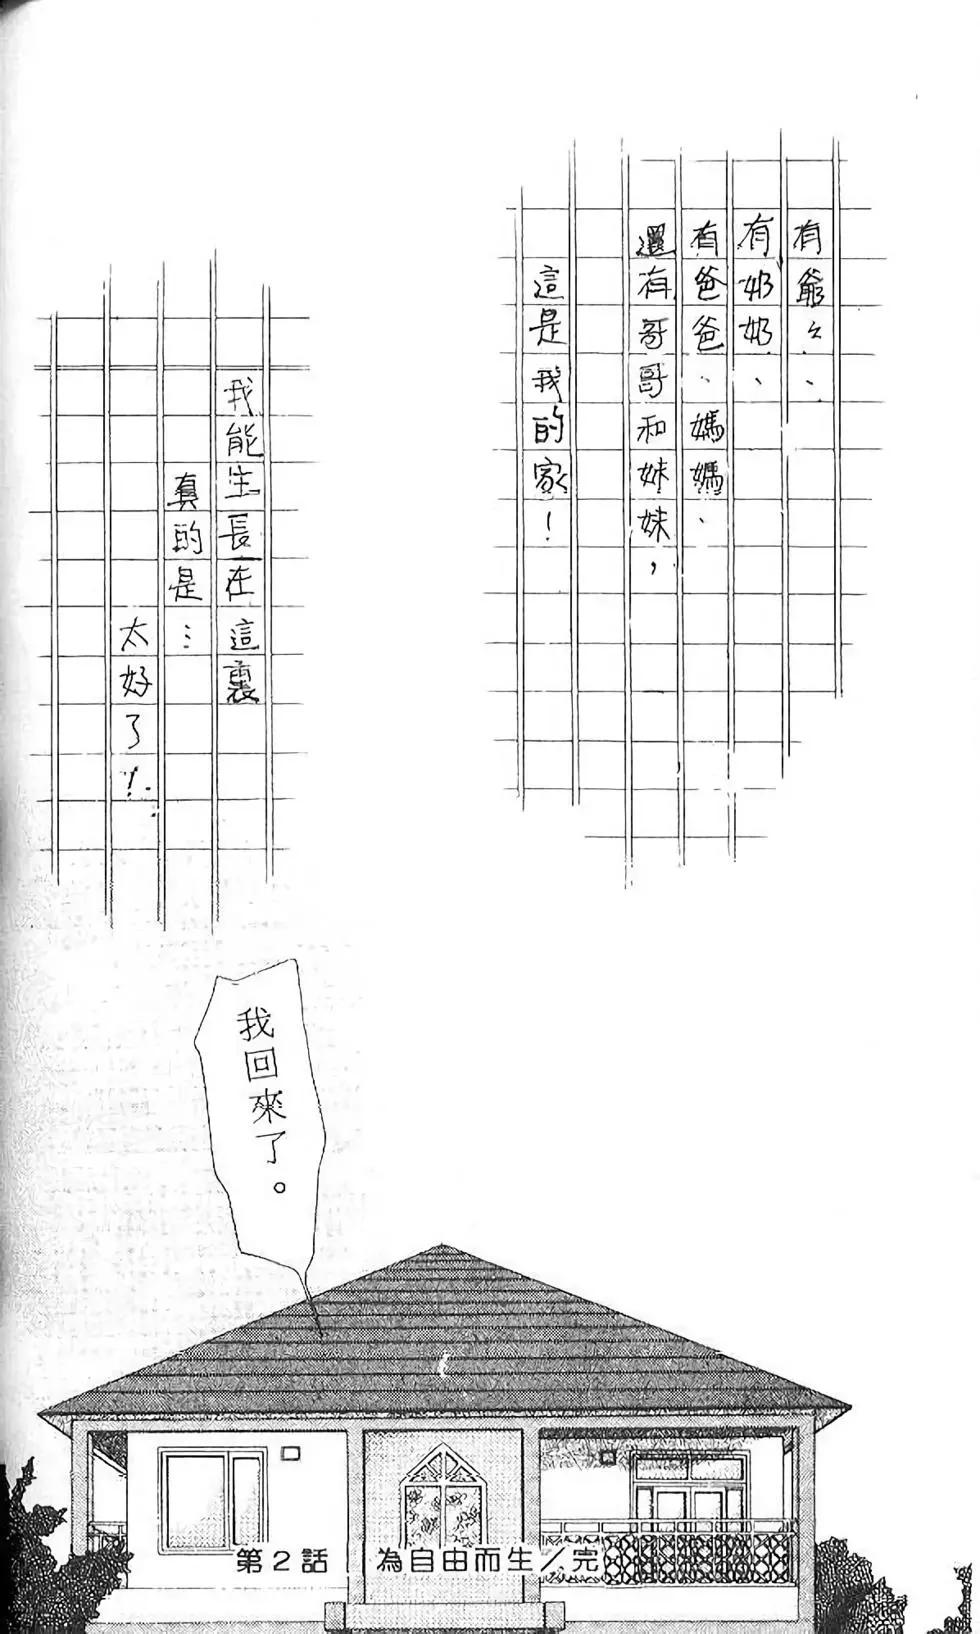 有爺々、
有奶奶、
有爸爸、媽媽、
還有哥哥和妹妹，
這是我的家！
我能生長在這裏
真的是…
太好了！
我回來了。
第2話 為自由而生／完